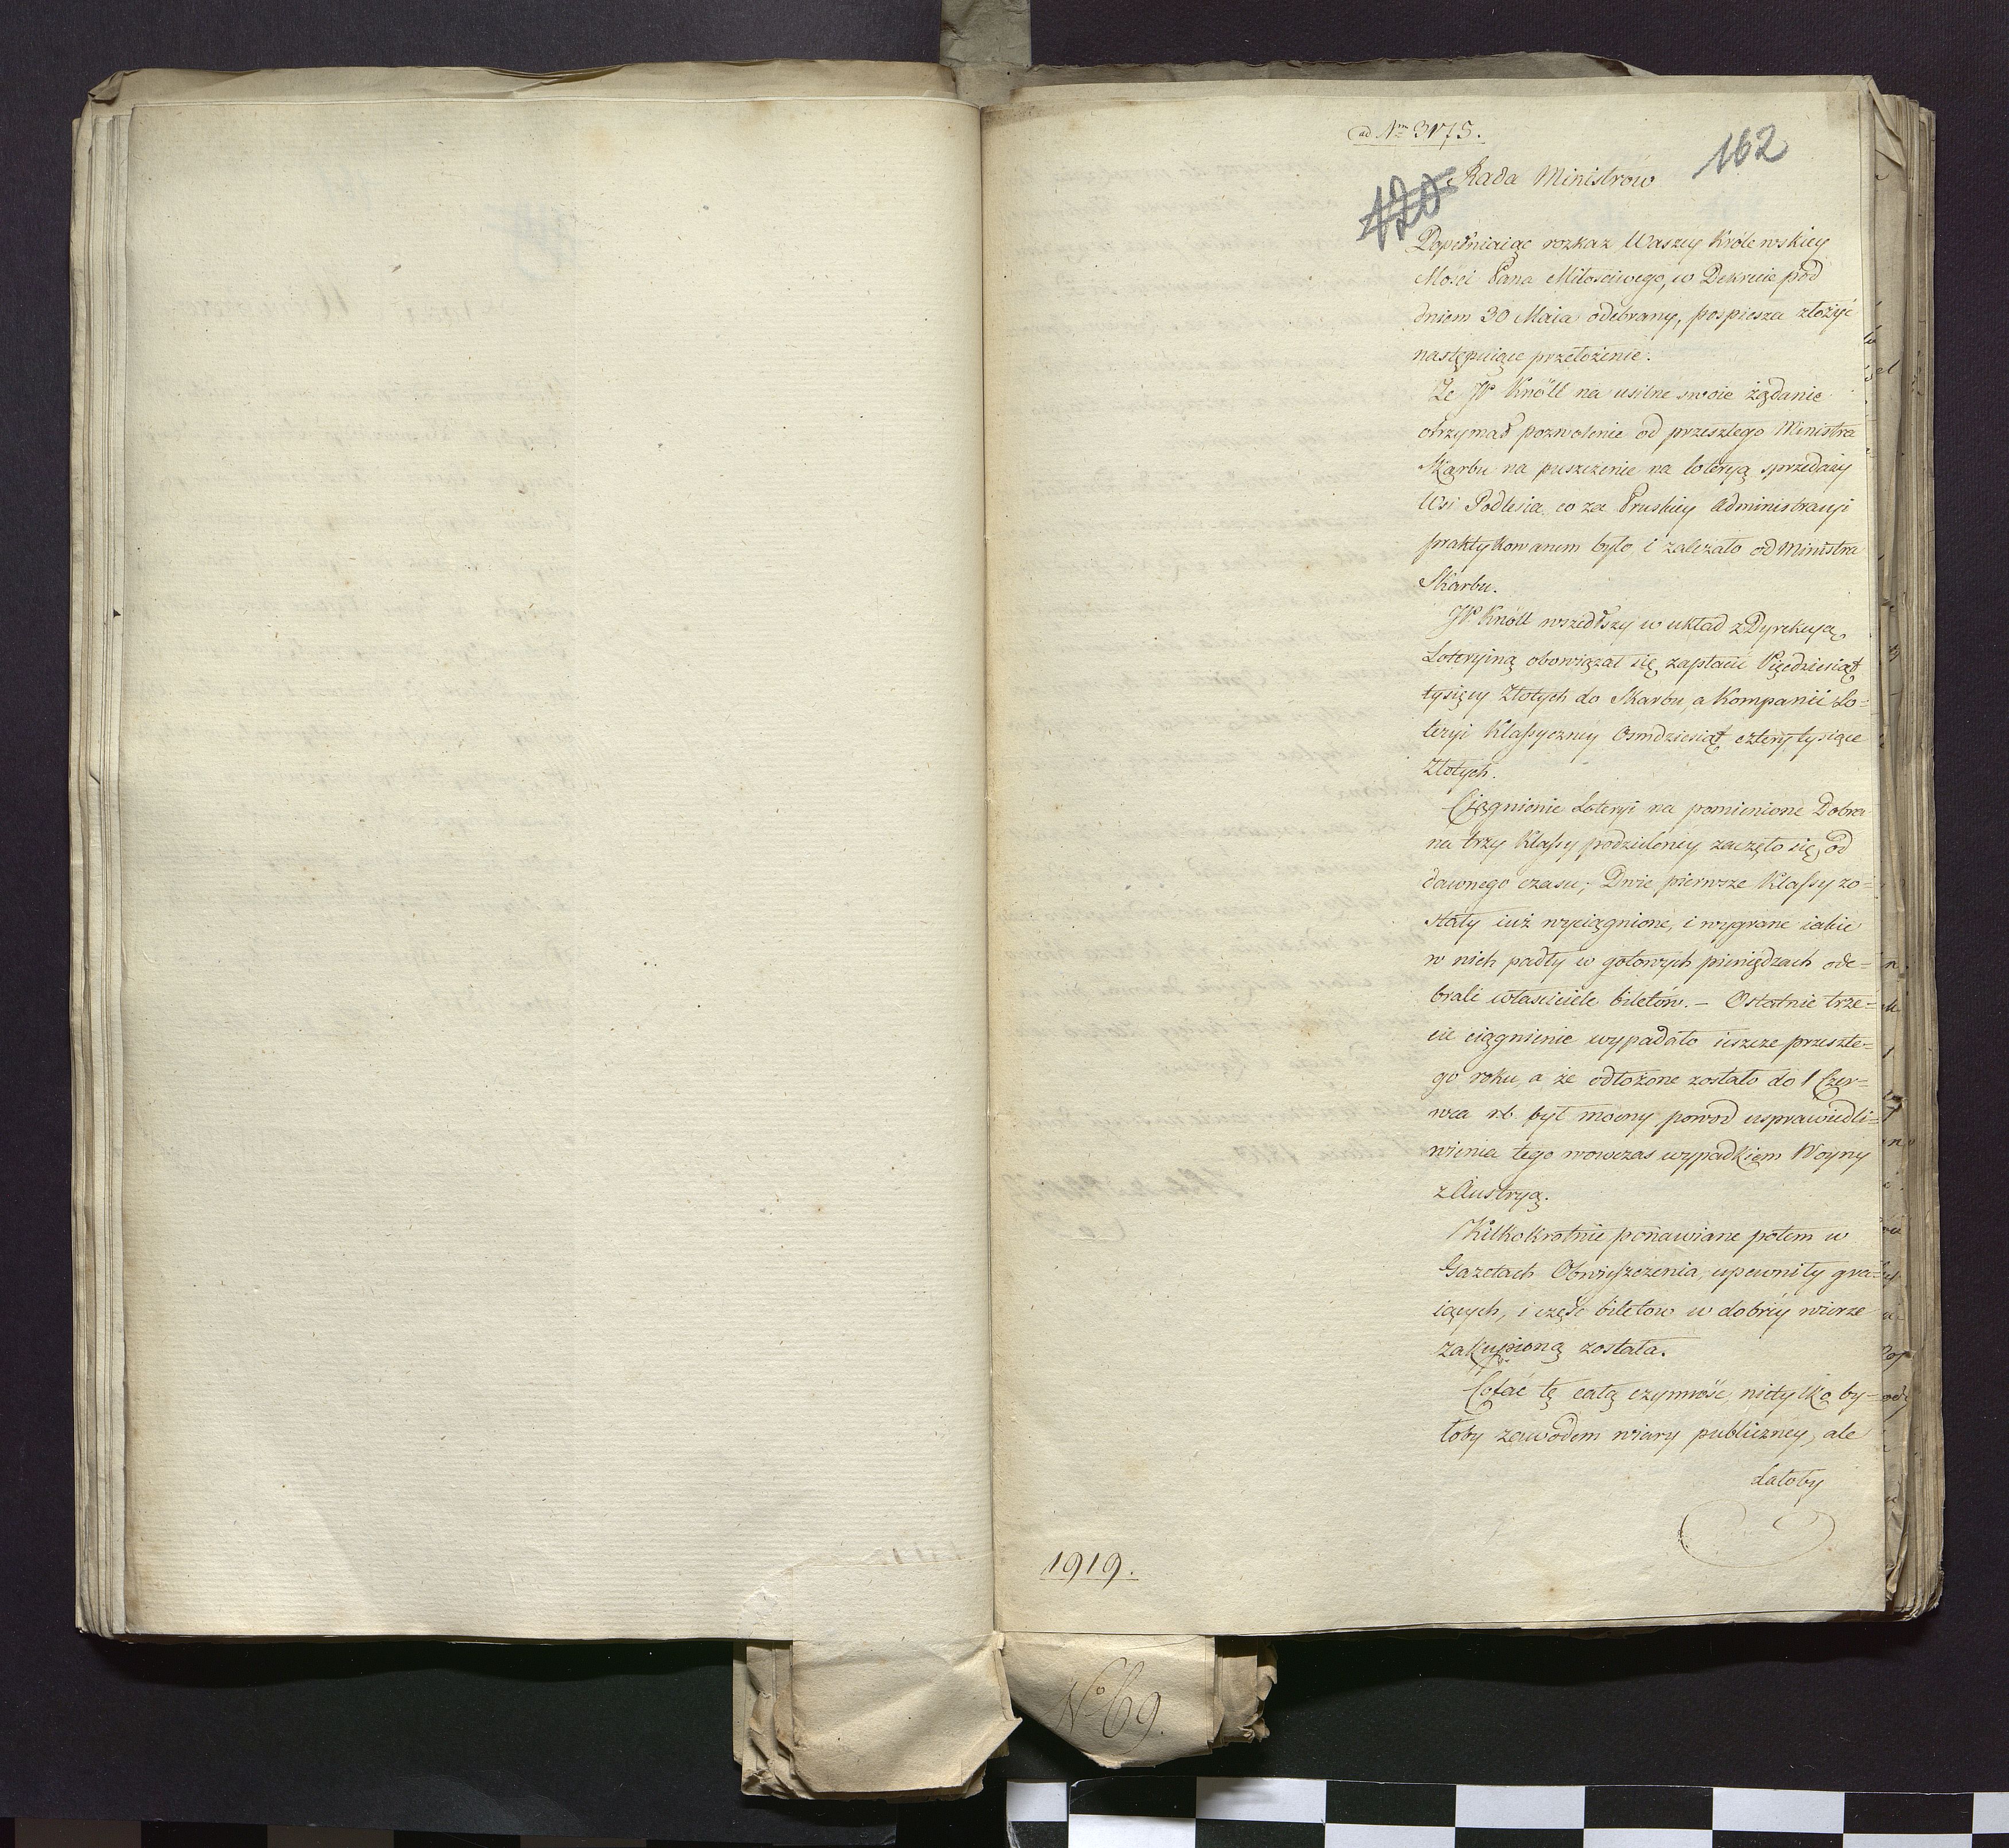 ad Nrm 3175.
162
Rada Ministrów
170
Dopełniaiąc rozkaz Waszey Królewskiey
Mości Pana Miłościwego, w Dekrecie pod
dniem 30 Maia odebrany, pospiesza złożyć
następuiące przełożenie.
Ze JP Knöll na usilne swoie żądanie
otrzymał pozwolenie od przeszłego Ministra
Skarbu na puszczenie na loteryą sprzedaży
Wsi Podlesia, co za Pruskiey Administracyi
praktykowanem było, i zależało od Ministra
Skarbu.
JP Knöll wszedłszy w układ z Dyrekcyą
Loteryiną obowiązał się zapłacić Pięcdziesiąt
tysięcy Złotych do Skarbu, a Kompanii Lo=
teryi Klassyczney Osmdziesiąt cztery tysiące
Złotych.
Ciągnienie Loteryi na pomienione Dobra
na trzy Klassy podzieloney zaczęło się, od
dawnego czasu; Dwie pierwsze Klassy zo=
stały iuż wyciągnione, i wygrane iakie
w nich padły w gotowych pieniędzach ode=
brali właściciele biletów. – Ostatnie trze=
cie ciągnienie wypadało ieszcze przeszłe=
go roku, a że odłożone zostało do 1 Czer=
wca rb był mocny powod usprawiedli=
wienia tego wowczas wypadkiem Woyny
z Austryą.
Kilkokrotnie ponawiane potem w
Gazetach Obwieszczenia, upewniły gra=
iących, i część biletow w dobrey wierze
zakupioną została.
Cofać tę całą czynność, nietylko by=
łoby zawodem wiary publiczney, ale
dałoby
1919.
No 69.